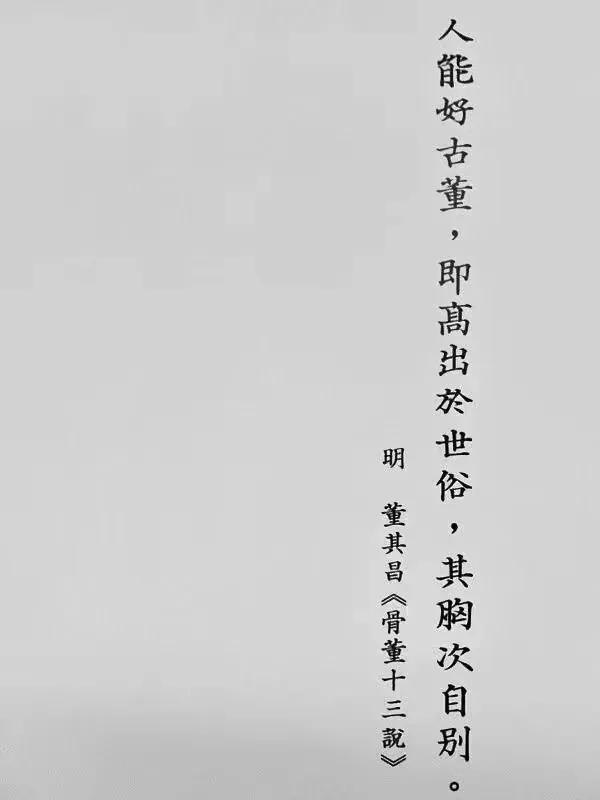 人能好古董，即髙出於世俗，其胸次自别。
明　董其昌《骨董十三說》